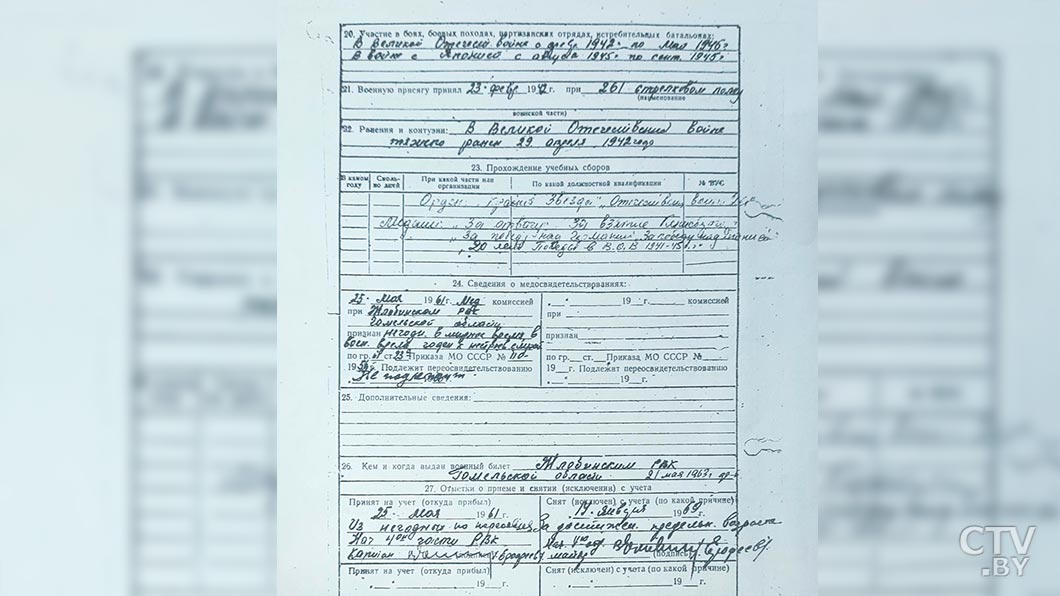 20. Участие в боях, боевых походах, партизанских отрядах, истребительных батальонах:
В Великой Отечест войне с февр 1942г по Май 1945г
В войне с Японией с августа 1945г по сент. 1945г
21. Военную присягу принял 23 февр 1942 г. при 261 стрелковом полку
(наименование
воинской части)
22. Ранения и контузии: В Великой Отечественной войне
тяжело ранен 29 апреля 1942 года
23. Прохождение учебных сборов
В каком году
Сколько дней
При какой части или организации
По какой должностной квалификации
№ ВУС
Орден: Красной Звезды, Отечествен войны
Медали: За отвагу За взятие
За победу над Германией За победу над Японией
20 лет Победы в В.О.В 1941-45г.
24. Сведения о медосвидетельствованиях:
25 Мая 1961 г. Мед комиссией
при Жлобинском РВК
Гомельской области
признан негодн. в мирное время, в
воен. время годен к нестроев службе
по гр. ст. 23 Приказа МО СССР №
19 г. Подлежит переосвидетельствованию
Не подлежит
" " 19 г. комиссией
при
признан
по гр. ст. Приказа МО СССР №
19 г. Подлежит переосвидетельствованию
" " 19 г.
25. Дополнительные сведения:
26. Кем и когда выдан военный билет Жлобинским РВК
Гомельской области 21 мая 1963г
27. Отметки о приеме и снятии (исключении) с учета
Принят на учет (откуда прибыл)
25 Мая 1961 г.
Из негодных по
Нач 4 ой части РВК
Капитан
Снят (исключен) с учета (по какой причине)
19 января 1969 г.
За достижен. предельн. возраста
майор
(подпись)
Принят на учет (откуда прибыл)
19 г.
Снят (исключен) с учета (по какой причине)
19 г.
CTV
.BY